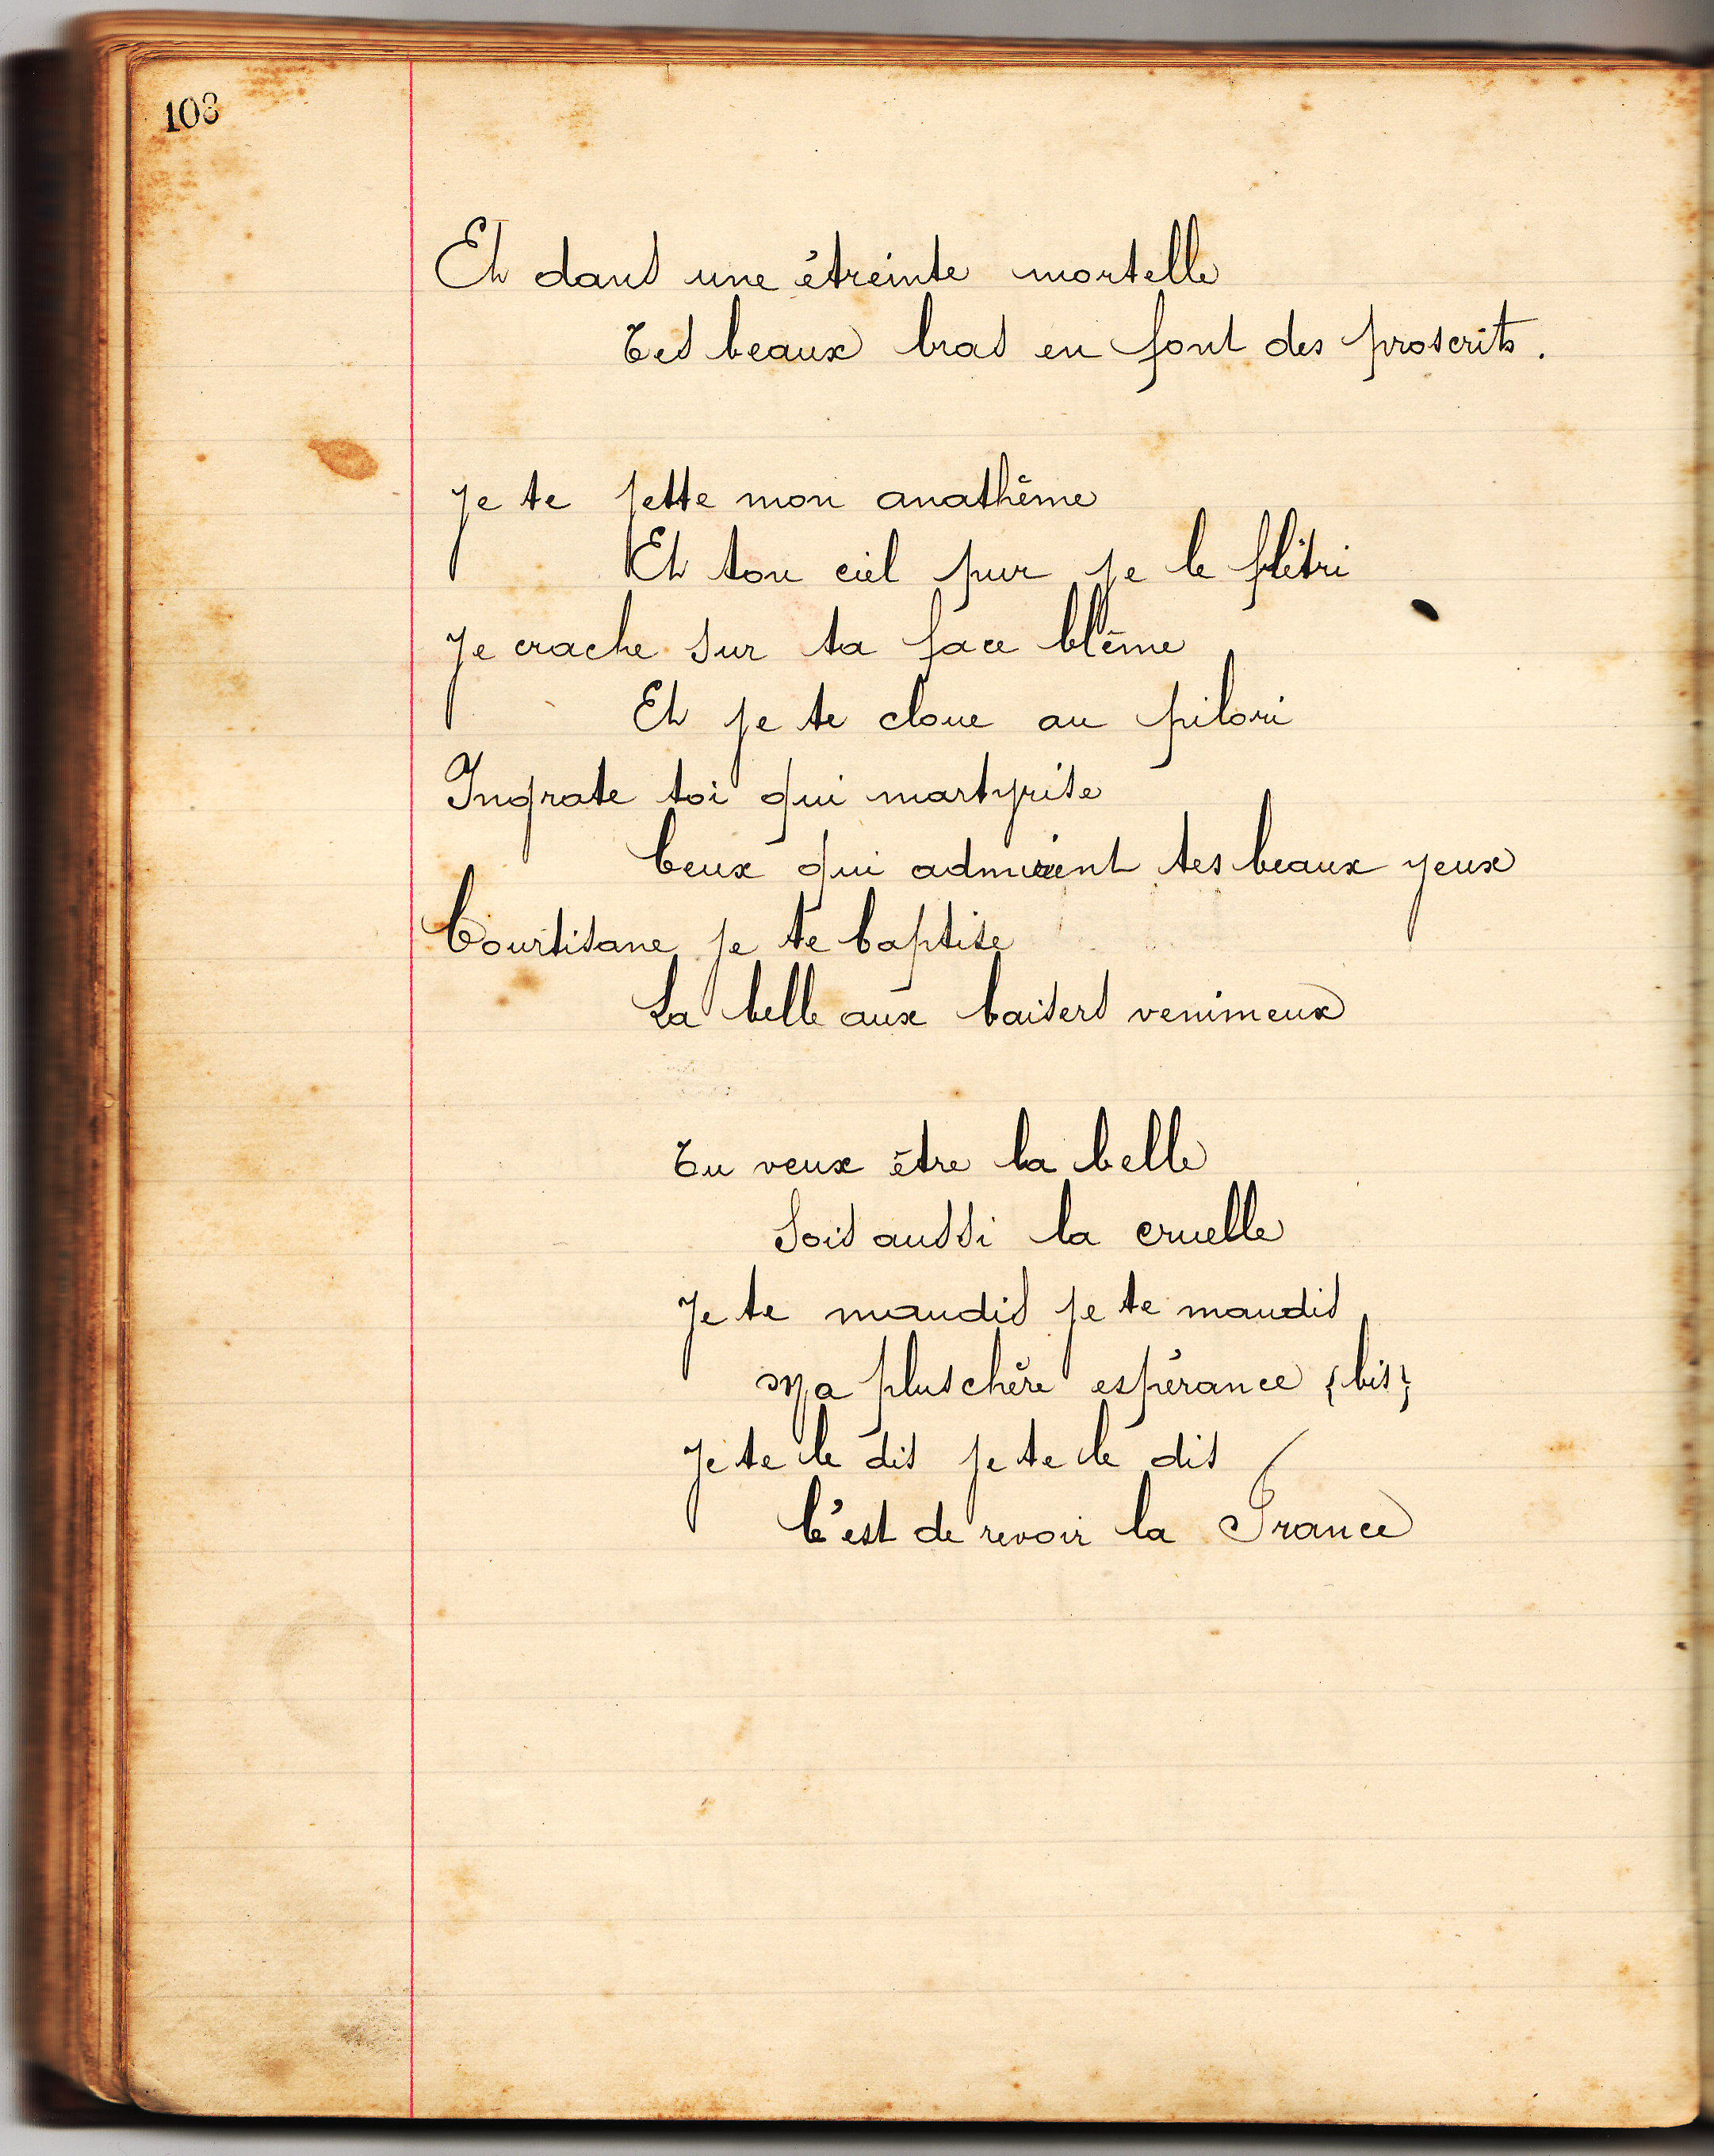 108
Et dans une étreinte mortelle
Tes beaux bras en font des proscrits.
Je te jette mon anathème
Et ton ciel pur je le flétri
Je crache sur ta face blême
Et je te cloue au pilori
Ingrate toi qui martyrise
Ceux qui admirent tes beaux yeux
Courtisane je te baptise
La belle aux baisers venimeux
Tu veux être la belle
Sois aussi la cruelle
Je te maudis je te maudis
Ma plus chère espérance {bis}
Je te le dis je te le dis
C'est de revoir la France